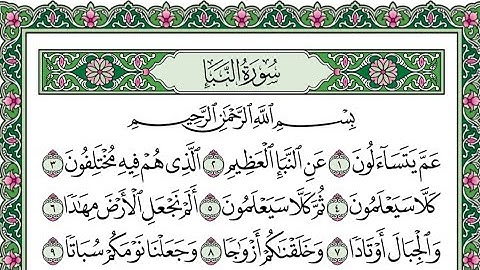 سُورَةُ النَّبَإِ
بِسْمِ ٱللَّهِ ٱلرَّحْمَٰنِ ٱلرَّحِيمِ
عَمَّ يَتَسَآءَلُونَ ١ عَنِ ٱلنَّبَإِ ٱلْعَظِيمِ ٢ ٱلَّذِى هُمْ فِيهِ مُخْتَلِفُونَ ٣
كَلَّا سَيَعْلَمُونَ ٤ ثُمَّ كَلَّا سَيَعْلَمُونَ ٥ أَلَمْ نَجْعَلِ ٱلْأَرْضَ مِهَٰدًا ٦
وَٱلْجِبَالَ أَوْتَادًا ٧ وَخَلَقْنَٰكُمْ أَزْوَٰجًا ٨ وَجَعَلْنَا نَوْمَكُمْ سُبَاتًا ٩